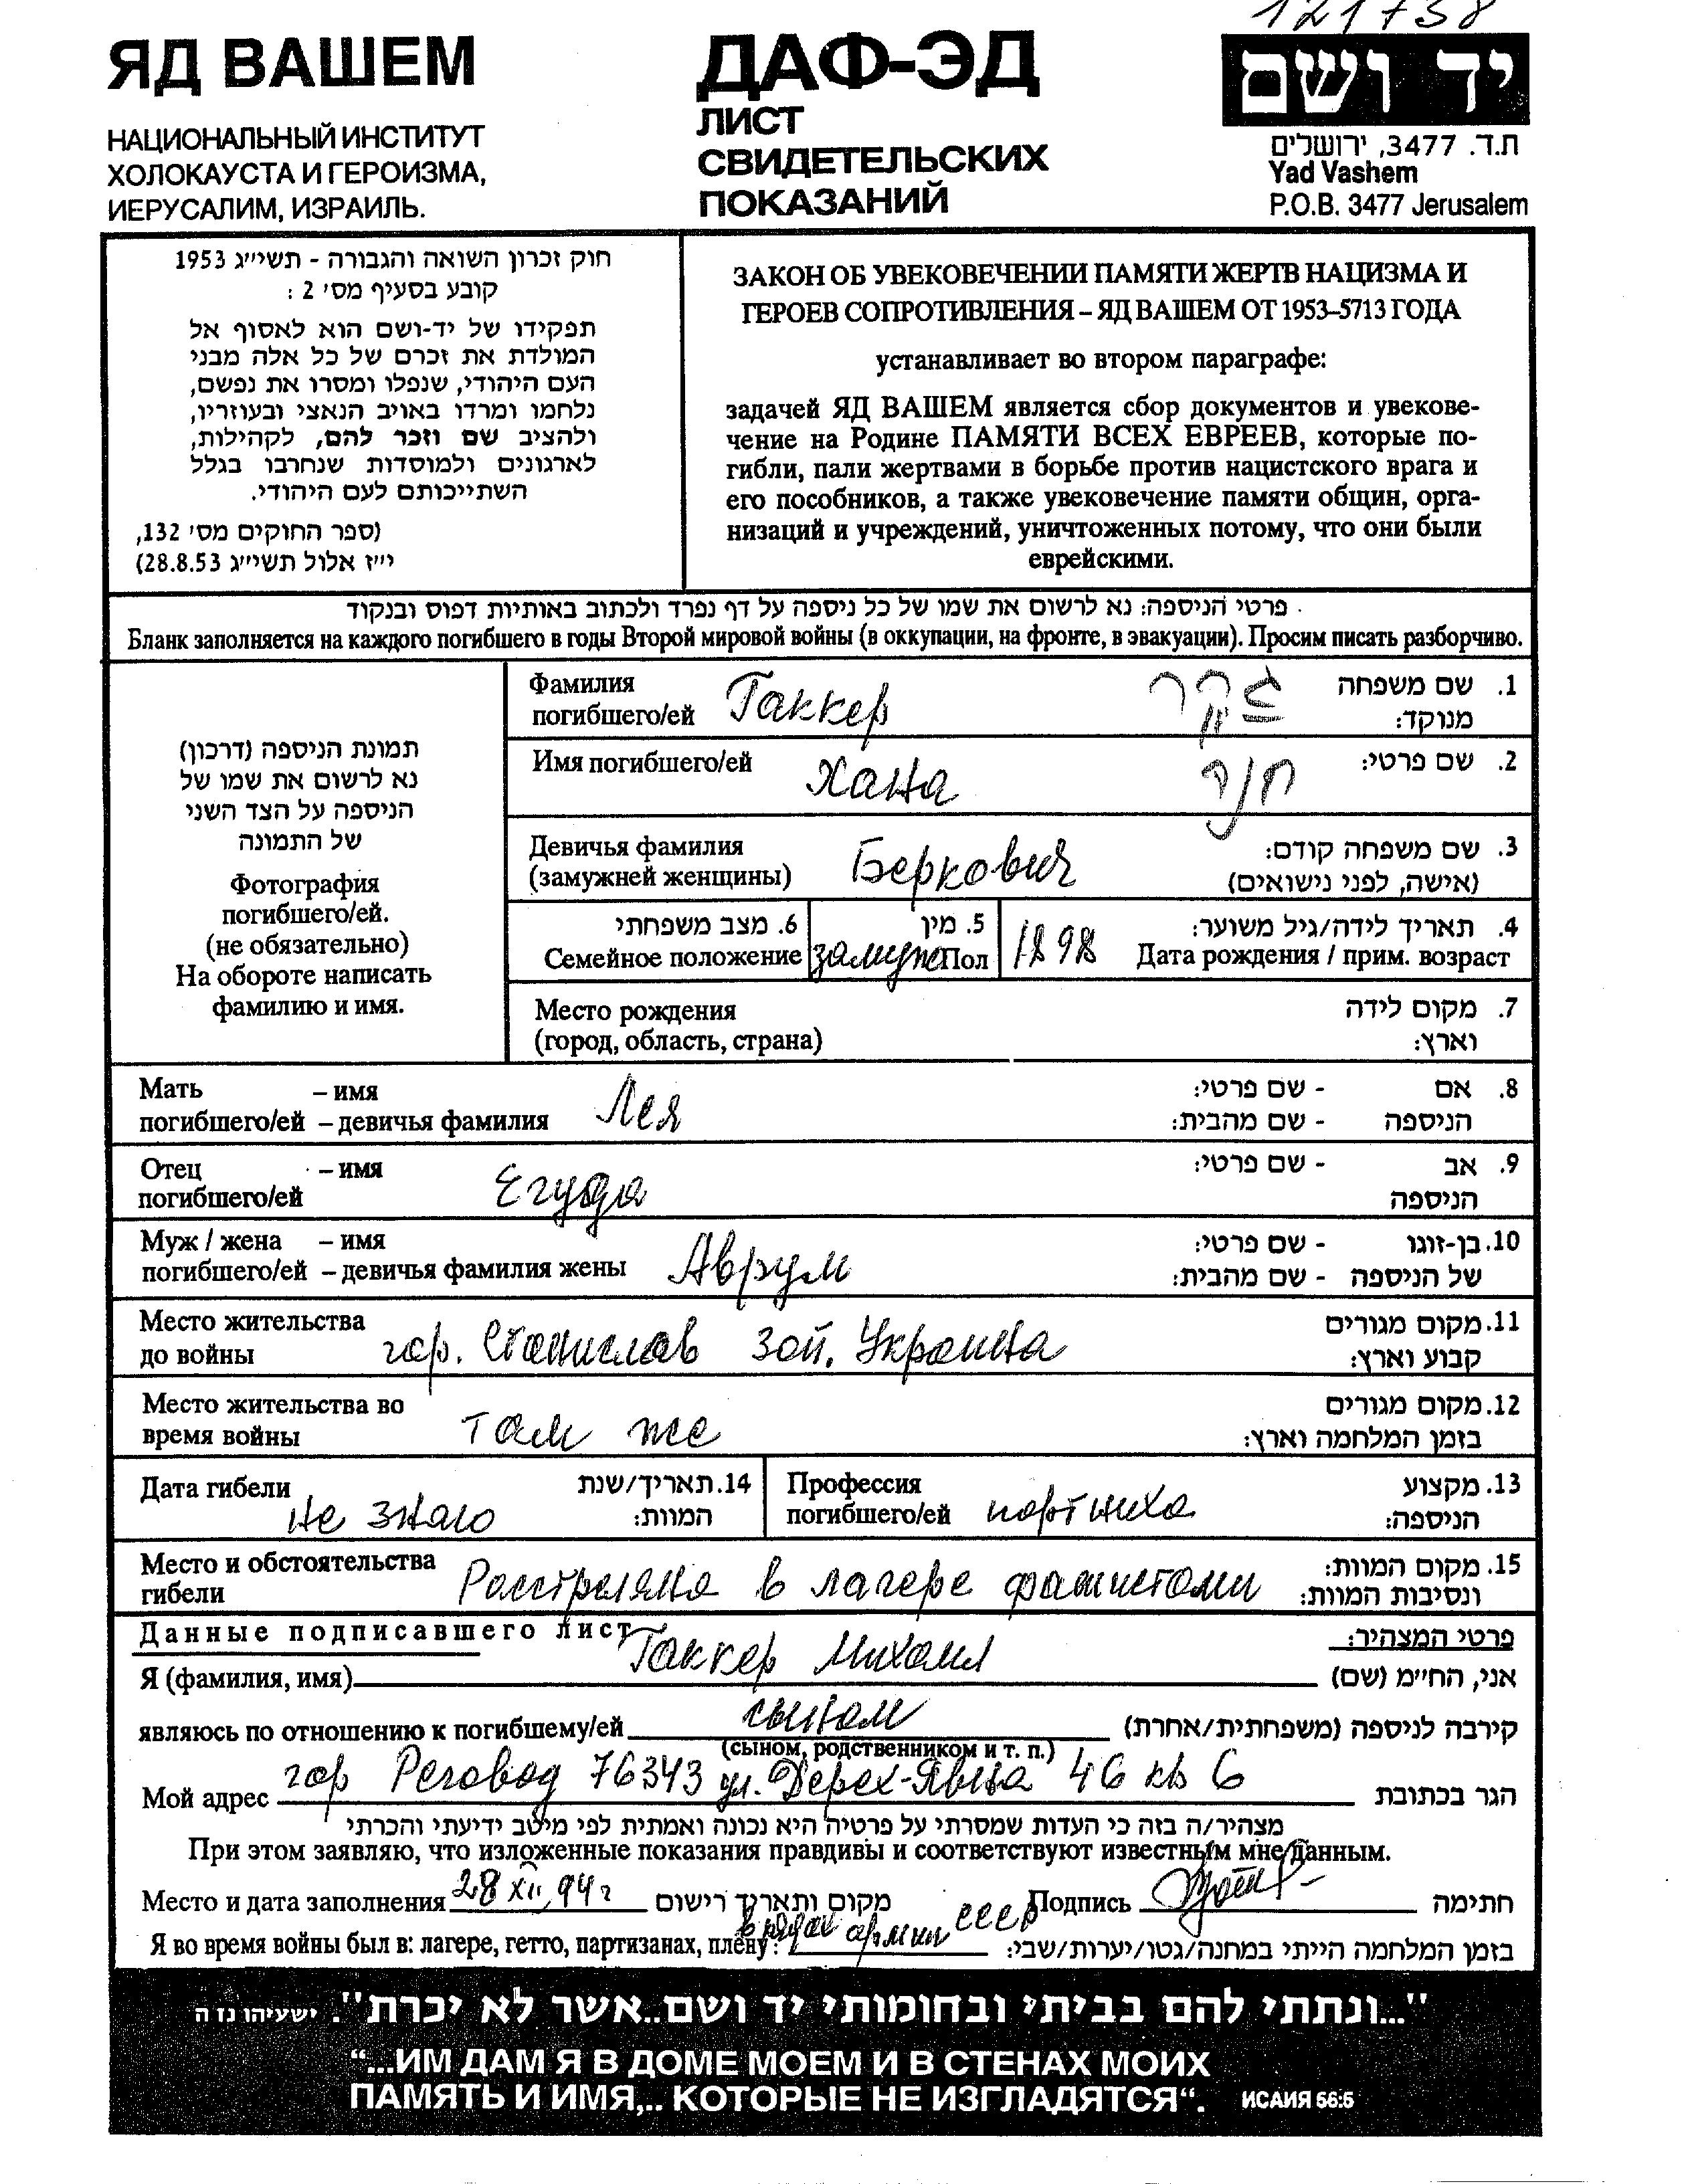 121738
ЯД ВАШЕМ
НАЦИОНАЛЬНЫЙ ИНСТИТУТ
ХОЛОКАУСТА И ГЕРОИЗМА,
ИЕРУСАЛИМ, ИЗРАИЛЬ.
ДАФ-ЭД
ЛИСТ
СВИДЕТЕЛЬСКИХ
ПОКАЗАНИЙ
יד ושם
ת.ד. 3477, ירושלים
Yad Vashem
P.O.B. 3477 Jerusalem
חוק זכרון השואה והגבורה - תשי״ג 1953
קובע בסעיף מס׳ 2 :
תפקידו של יד-ושם הוא לאסוף אל
המולדת את זכרם של כל אלה מבני
העם היהודי, שנפלו ומסרו את נפשם,
נלחמו ומרדו באויב הנאצי ובעוזריו,
ולהציב שם וזכר להם, לקהילות,
לארגונים ולמוסדות שנחרבו בגלל
השתייכותם לעם היהודי.
(ספר החוקים מס׳ 132,
י״ז אלול תשי״ג 28.8.53)
ЗАКОН ОБ УВЕКОВЕЧЕНИИ ПАМЯТИ ЖЕРТВ НАЦИЗМА И
ГЕРОЕВ СОПРОТИВЛЕНИЯ – ЯД ВАШЕМ ОТ 1953–5713 ГОДА
устанавливает во втором параграфе:
задачей ЯД ВАШЕМ является сбор документов и увекове-
чение на Родине ПАМЯТИ ВСЕХ ЕВРЕЕВ, которые по-
гибли, пали жертвами в борьбе против нацистского врага и
его пособников, а также увековечение памяти общин, орга-
низаций и учреждений, уничтоженных потому, что они были
еврейскими.
פרטי הניספה: נא לרשום את שמו של כל ניספה על דף נפרד ולכתוב באותיות דפוס ובנקוד
Бланк заполняется на каждого погибшего в годы Второй мировой войны (в оккупации, на фронте, в эвакуации). Просим писать разборчиво.
תמונת הניספה (דרכון)
נא לרשום את שמו של
הניספה על הצד השני
של התמונה
Фотография
погибшего/ей.
(не обязательно)
На обороте написать
фамилию и имя.
Фамилия
погибшего/ей Гаккер
1. שם משפחה
מנוקד:
Имя погибшего/ей Хана
2. שם פרטי: חנה
Девичья фамилия
(замужней женщины) Беркович
3. שם משפחה קודם:
(אישה, לפני נישואים)
6. מצב משפחתי
Семейное положение
5. מין
замужем Пол
4. תאריך לידה/גיל משוער:
1898 Дата рождения / прим. возраст
Место рождения
(город, область, страна)
7. מקום לידה
וארץ:
Мать – имя
погибшего/ей – девичья фамилия Лея
8. אם - שם פרטי:
הניספה - שם מהבית:
Отец – имя
погибшего/ей Егуда
9. אב - שם פרטי:
הניספה
Муж / жена – имя
погибшего/ей – девичья фамилия жены Аврум
10. בן-זוגו - שם פרטי:
של הניספה - שם מהבית:
Место жительства
до войны гор. Станислав Зап. Украина
11. מקום מגורים
קבוע וארץ:
Место жительства во
время войны там же
12. מקום מגורים
בזמן המלחמה וארץ:
Дата гибели
не знаю
14. תאריך/שנת
המוות:
Профессия
погибшего/ей портниха
13. מקצוע
הניספה:
Место и обстоятельства
гибели Расстреляна в лагере фашистами
15. מקום המוות:
ונסיבות המוות:
Данные подписавшего лист
פרטי המצהיר:
Я (фамилия, имя) Гаккер Михаил אני, החי״מ (שם)
являюсь по отношению к погибшему/ей сыном קירבה לניספה (משפחתית/אחרת)
(сыном, родственником и т. п.)
Мой адрес гор Реховод 76343 ул. Дерех-Явне 46 кв 6 הגר בכתובת
מצהיר/ה בזה כי העדות שמסרתי על פרטיה היא נכונה ואמתית לפי מיטב ידיעתי והכרתי
При этом заявляю, что изложенные показания правдивы и соответствуют известным мне/данным.
Место и дата заполнения 28 XII 94г מקום ותאריך רישום Подпись חתימה
Я во время войны был в: лагере, гетто, партизанах, плену: в рядах армии СССР בזמן המלחמה הייתי במחנה/גטו/יערות/שבי:
"...ונתתי להם בביתי ובחומותי יד ושם...אשר לא יכרת". ישעיהו נו ה
“...ИМ ДАМ Я В ДОМЕ МОЕМ И В СТЕНАХ МОИХ
ПАМЯТЬ И ИМЯ,.. КОТОРЫЕ НЕ ИЗГЛАДЯТСЯ“. ИСАИЯ 56:5